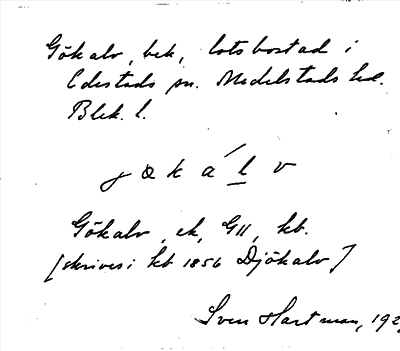 Gökalv, bek, lotsbostad i
Edestads sn. Medelstads hd.
Blek. l.
j œ k a ́ l v
Gökalv, ek, G11, kb.
[skrives i kb 1856 Djökalv]
Sven Hartman, 192